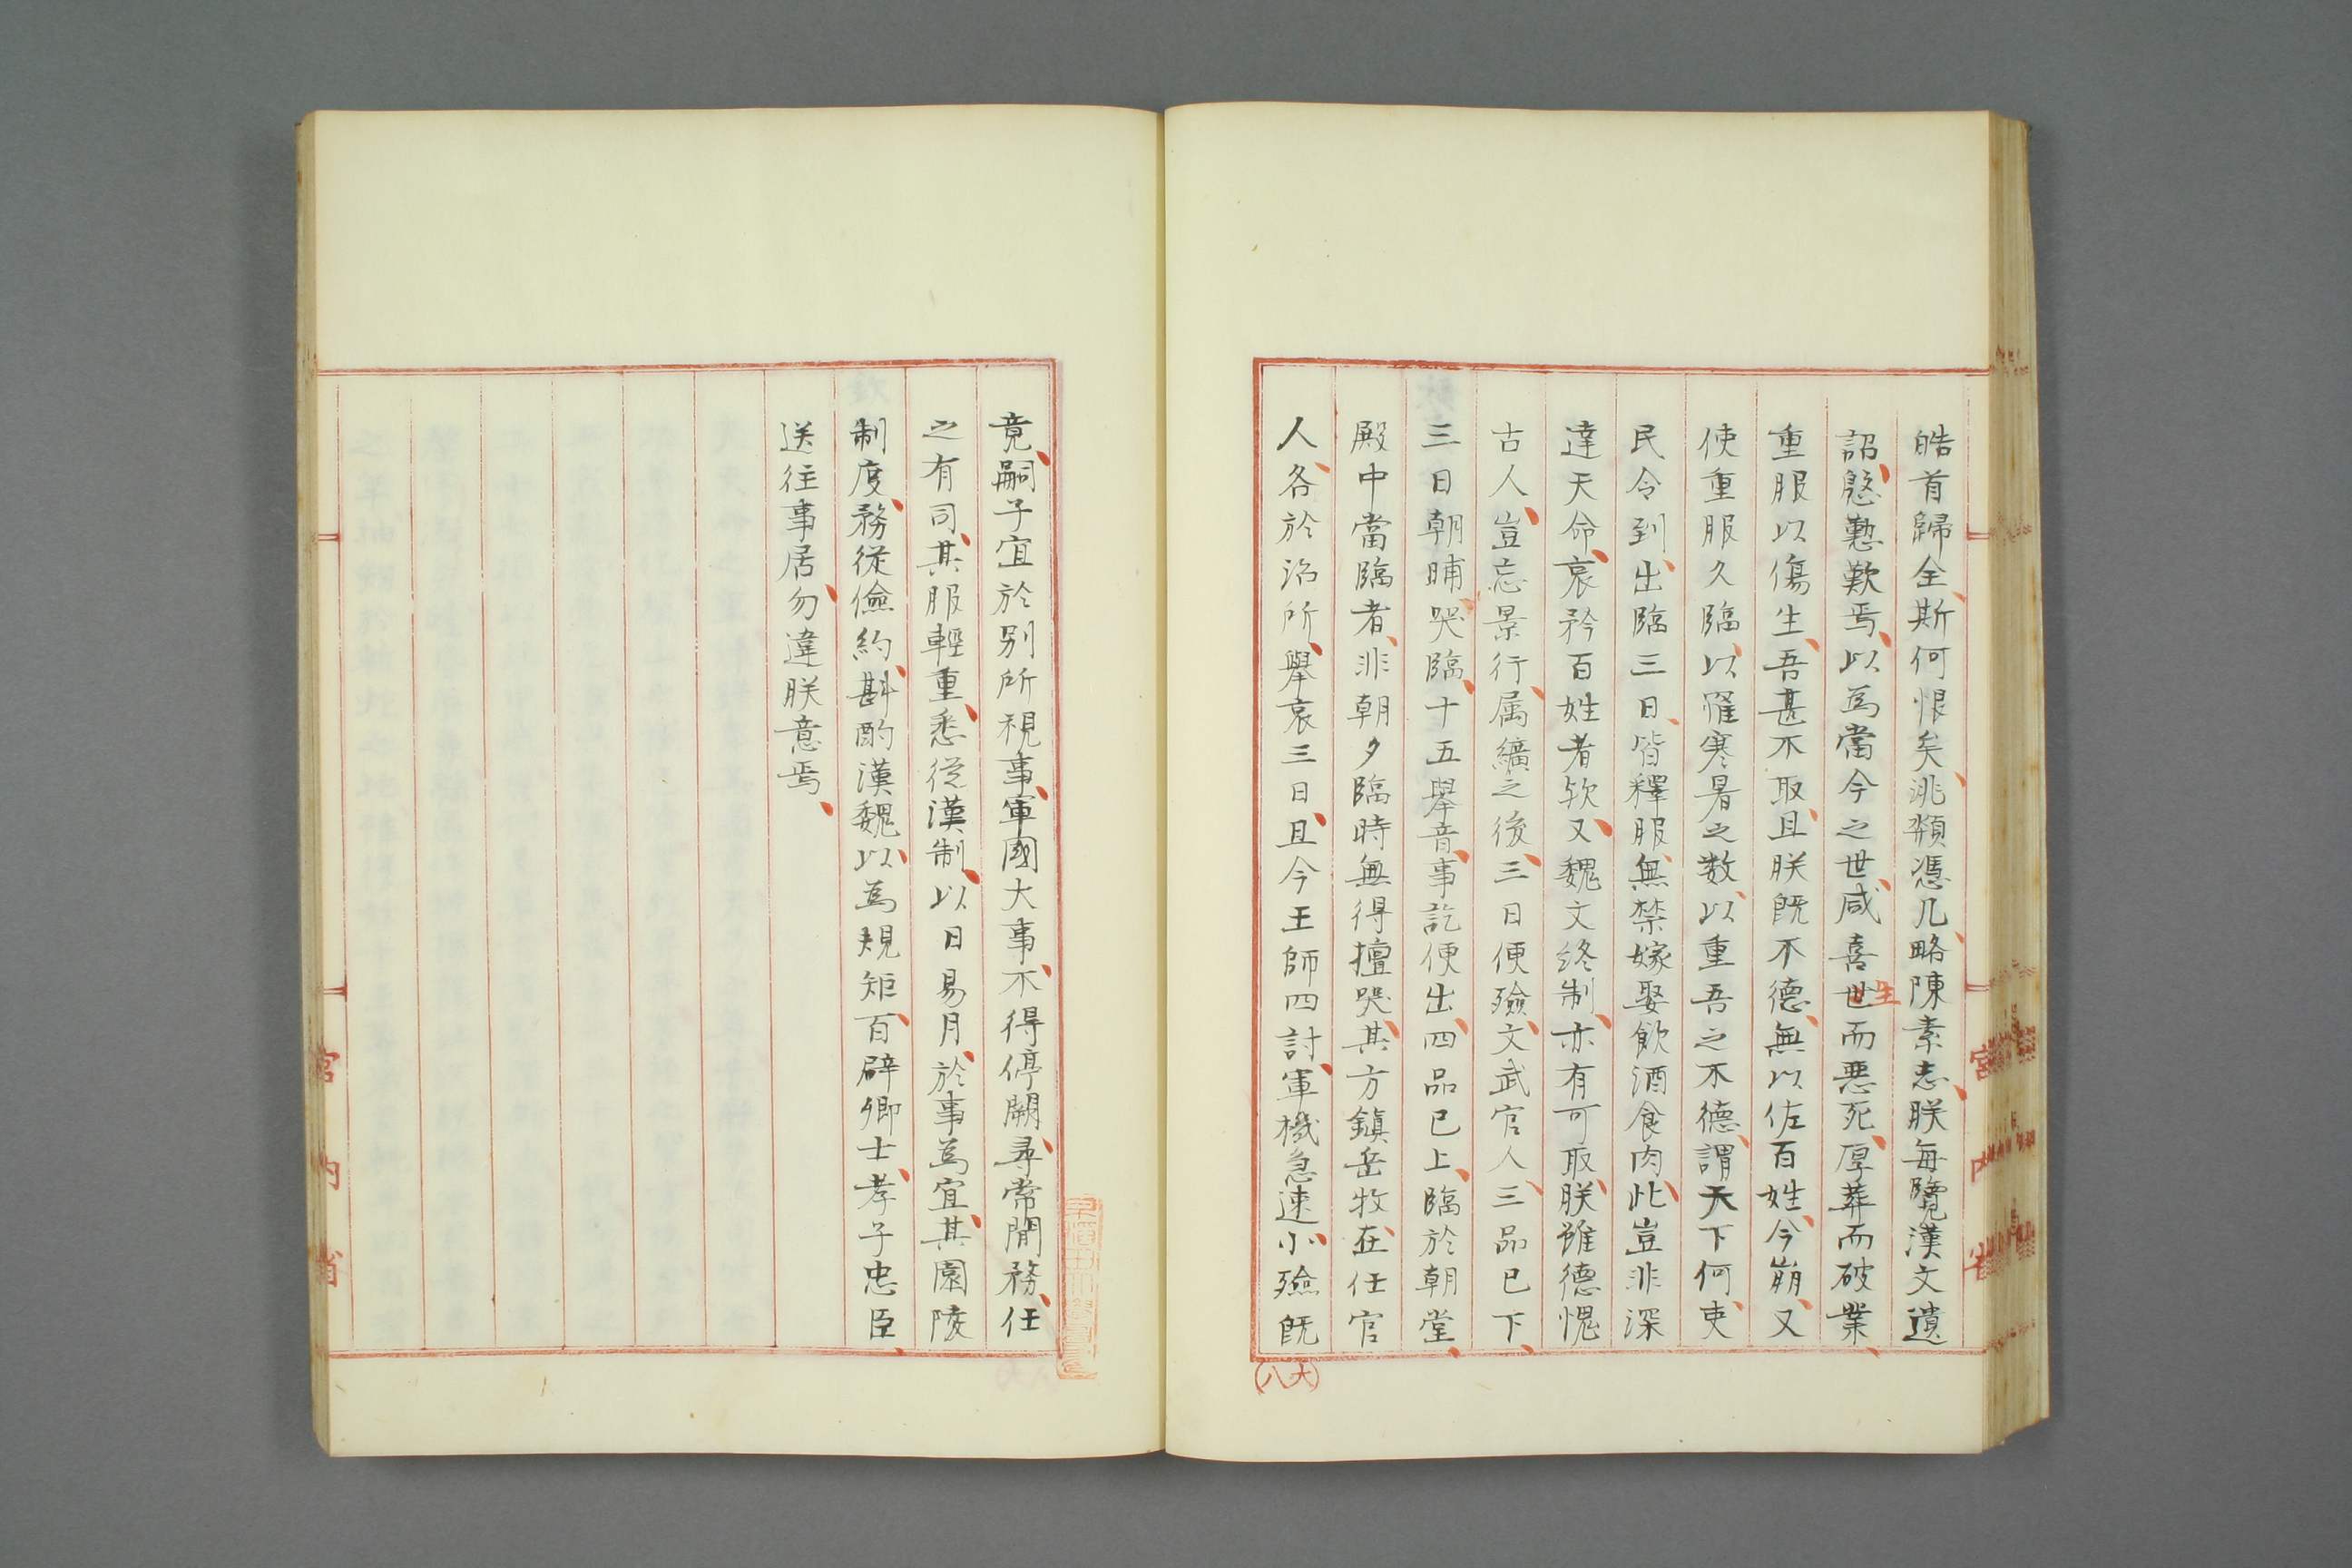 皓首歸全斯何恨矣洮頮憑几略陳素志朕每覽漢文遺
詔慇懃歎焉以為當今之世咸喜世而悪死厚葬而破業
生
重服以傷生吾甚不取且朕既不德無以佐百姓今崩又
使重服久臨以罹寒暑之数以重吾之不德謂天下何吏
民令到出臨三日皆釋服無禁嫁娶飲酒食肉此豈非深
達天命哀矜百姓者欤又魏文終制亦有可取朕雖德愧
古人豈忘景行属纊之後三日便殮文武官人三品已下
三日朝晡哭臨十五舉音事訖便出四品已上臨於朝堂
殿中當臨者非朝夕臨時無得擅哭其方鎮岳牧在任官
人各於治所舉哀三日且今王師四討軍機急速小殮既
(六八)
竟嗣子宜於别所視事軍國大事不得停闕尋常閒務任
之有司其服輕重悉從漢制以日易月於事為宜其園陵
制度務從儉約斟酌漢魏以為規矩百辟卿士孝子忠臣
送往事居勿違朕意焉
宮内省